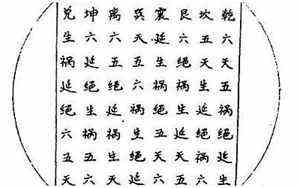 乾六天五祸绝延生
坎五天生延绝祸六
艮六绝祸生延天五
震延生祸绝五天六
巽天五六祸生绝延
离六五绝延祸生天
坤天延绝生祸五六
兑生祸延绝六五天